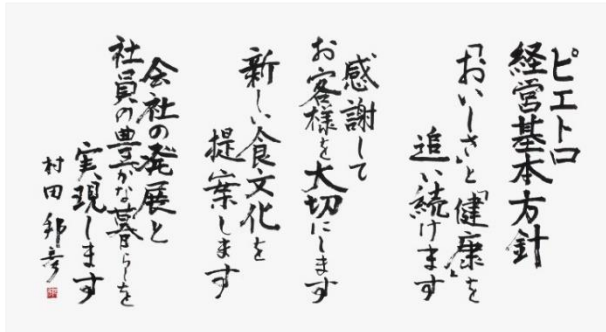 ピエトロ
経営基本方針
「おいしさ」と「健康」を
追い続けます
感謝して
お客様を大切にします
新しい食文化を
提案します
会社の発展と
社員の豊かな暮らしを
実現します
村田邦彦